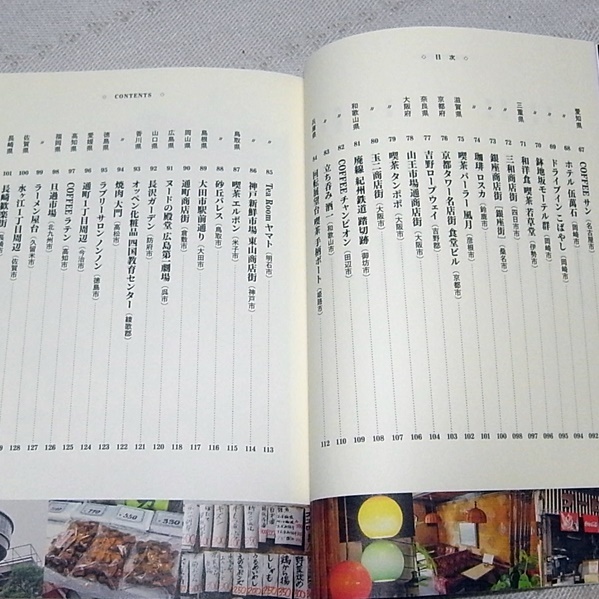 ☆ 目次 ☆
愛知県 67 COFFEE サン（名古屋市） 092
〃 68 ホテル 佰萬石（岡崎市） 094
〃 69 ドライブイン こばやし（岡崎市） 095
〃 70 鉢地坂モーテル群（岡崎市） 096
三重県 71 和洋食 喫茶 若草堂（伊勢市） 097
〃 72 三和商店街（四日市市） 098
〃 73 銀座商店街［銀座街］（桑名市） 100
〃 74 珈琲 ロスカ（鈴鹿市） 101
滋賀県 75 喫茶パーラー 風月（彦根市） 102
京都府 76 京都タワー名店街 食堂ビル（京都市） 103
奈良県 77 吉野ロープウェイ（吉野郡） 104
大阪府 78 山王市場通商店街（大阪市） 106
〃 79 喫茶 タンポポ（大阪市） 107
〃 80 玉二商店街（大阪市） 108
和歌山県 81 廃線 紀州鉄道 踏切跡（御坊市） 109
〃 82 COFFEE チャンピオン（田辺市） 110
〃 83 立ち呑み 酒一（和歌山市）
兵庫県 84 回転展望台 喫茶 手柄ポート（姫路市） 112
☆ CONTENTS ☆
〃 85 Tea Room ヤマト（明石市） 113
〃 86 神戸新鮮市場 東山商店街（神戸市） 114
鳥取県 87 喫茶 エルボン（米子市） 115
〃 88 砂丘パレス（鳥取市） 116
島根県 89 大田市駅前通り（大田市） 117
岡山県 90 通町商店街（倉敷市） 118
広島県 91 ヌードの殿堂 広島第一劇場（呉市） 119
山口県 92 長沢ガーデン（防府市） 120
香川県 93 オッペン化粧品 四国教育センター（綾歌郡） 121
〃 94 焼肉 大門（高松市） 122
徳島県 95 ラブリーサロン ノンノン（徳島市） 123
愛媛県 96 通町1丁目周辺（今治市） 124
高知県 97 COFFEE ラテン（高知市） 125
福岡県 98 旦過市場（北九州市） 126
〃 99 ラーメン屋台（久留米市） 127
佐賀県 100 水ヶ江1丁目周辺（佐賀市） 128
長崎県 101 長崎歓楽街（長崎市）
550
350